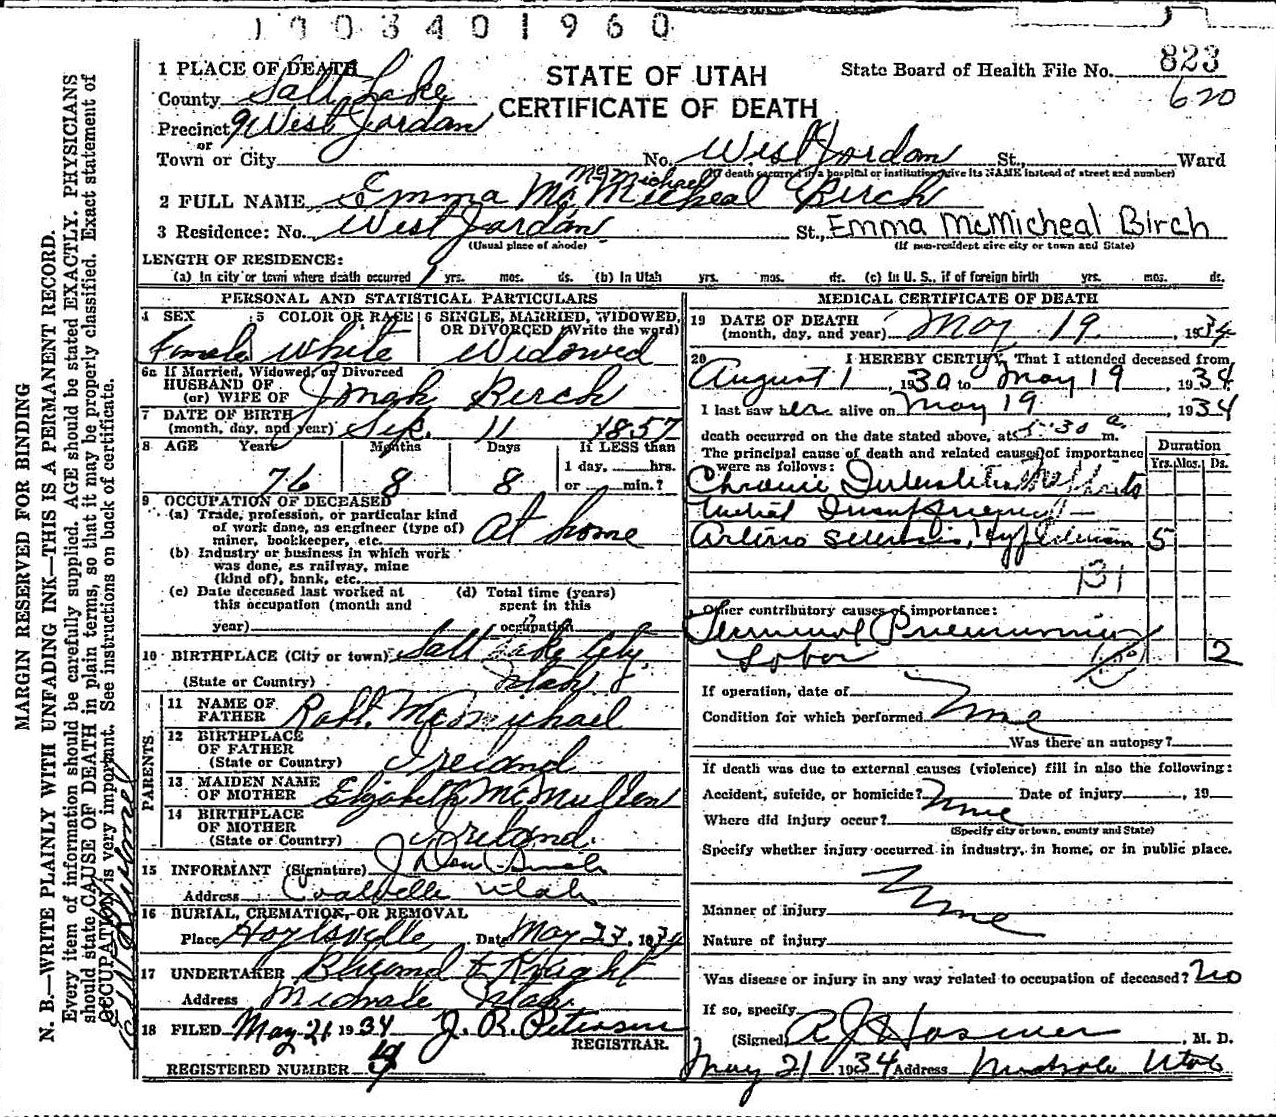 1003401960
STATE OF UTAH
CERTIFICATE OF DEATH
State Board of Health File No. 823
620
1 PLACE OF DEATH
County Salt Lake
Precinct 9 West Jordan
or
Town or City No. West Jordan St., Ward
(If death occurred in a hospital or institution give its NAME instead of street and number)
McMichael
2 FULL NAME Emma McMicheal Birch
3 Residence: No. West Jordan St., Emma McMicheal Birch
(Usual place of abode) (If non-resident give city or town and State)
LENGTH OF RESIDENCE:
(a) In city or town where death occurred yrs. mos. ds. (b) In Utah yrs. mos. ds. (c) In U. S., if of foreign birth yrs. mos. ds.
PERSONAL AND STATISTICAL PARTICULARS
4 SEX 5 COLOR OR RACE 6 SINGLE, MARRIED, WIDOWED, OR DIVORCED (Write the word)
Female White Widowed
6a If Married, Widowed, or Divorced
HUSBAND OF
(or) WIFE OF Jonah Birch
7 DATE OF BIRTH
(month, day, and year) Sep. 11 1857
8 AGE Years Months Days If LESS than
76 8 8 1 day, hrs.
or min.?
9 OCCUPATION OF DECEASED
(a) Trade, profession, or particular kind
of work done, as engineer (type of)
miner, bookkeeper, etc. At home
(b) Industry or business in which work
was done, as railway, mine
(kind of), bank, etc.
(c) Date deceased last worked at (d) Total time (years)
this occupation (month and spent in this
year) occupation
10 BIRTHPLACE (City or town) Salt Lake City
(State or Country) Utah
PARENTS
11 NAME OF
FATHER Robt. McMichael
12 BIRTHPLACE
OF FATHER
(State or Country) Ireland
13 MAIDEN NAME
OF MOTHER Elizabeth McMullen
14 BIRTHPLACE
OF MOTHER
(State or Country) Ireland
15 INFORMANT (Signature) J
Address Coalville Utah
16 BURIAL, CREMATION, OR REMOVAL
Place Hoytsville Date May 23, 1934
17 UNDERTAKER & Knight
Address Midvale Utah
18 FILED May 21 1934 J. R. Peterson
REGISTRAR.
REGISTERED NUMBER
MEDICAL CERTIFICATE OF DEATH
19 DATE OF DEATH
(month, day, and year) May 19, 1934
20 I HEREBY CERTIFY, That I attended deceased from
August 1, 1930 to May 19 1934
I last saw her alive on May 19, 1934
death occurred on the date stated above, at 5:30 a. m.
The principal cause of death and related causes of importance
were as follows:
Duration
Yrs. Mos. Ds.
Chronic Interstitial Nephritis
Mitral Insufficiency
Arterio Sclerosis, Hypertension 5
131
Other contributory causes of importance:
Terminal Pneumonia
Lobar 2
If operation, date of
Condition for which performed None
Was there an autopsy?
If death was due to external causes (violence) fill in also the following:
Accident, suicide, or homicide? None Date of injury , 19
Where did injury occur?
(Specify city or town, county and State)
Specify whether injury occurred in industry, in home, or in public place.
Manner of injury None
Nature of injury
Was disease or injury in any way related to occupation of deceased? no
If so, specify
(Signed) , M. D.
May 21 1934 Address Midvale Utah
MARGIN RESERVED FOR BINDING
N. B.—WRITE PLAINLY WITH UNFADING INK—THIS IS A PERMANENT RECORD.
Every item of information should be carefully supplied. AGE should be stated EXACTLY. PHYSICIANS
should state CAUSE OF DEATH in plain terms, so that it may be properly classified. Exact statement of
OCCUPATION is very important. See instructions on back of certificate.